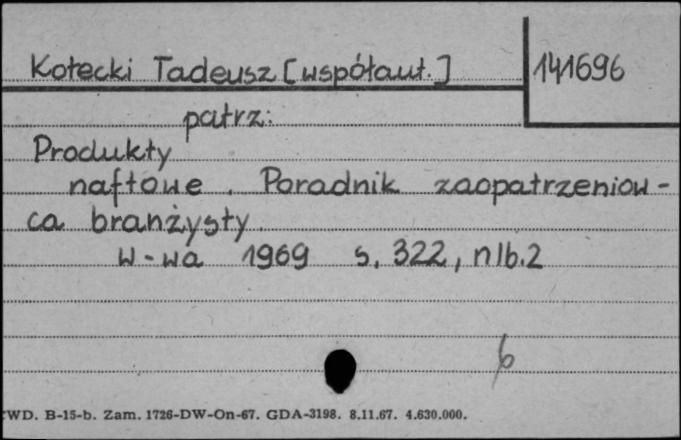 Kotecki Tadeusz [współaut.]
141696
patrz:
Produkty
naftowe. Poradnik zaopatrzeniow-
ca branżysty.
W-wa 1969 s. 322, nlb.2
6
WD. B-15-b. Zam. 1726-DW-On-67. GDA-3198. 8.11.67. 4.630.000.